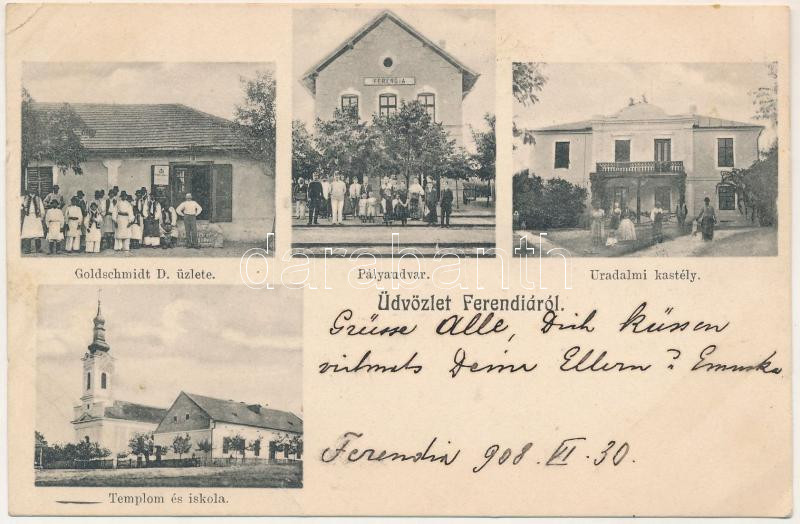 FERENDIA
Goldschmidt D. üzlete.
Pályaudvar.
Uradalmi kastély.
darabanth
Üdvözlet Ferendiáról.
Grüsse Alle, Dich küssen
vielmals Deine Eltern? Emuska
Ferendia 908. VI. 30.
Templom és iskola.